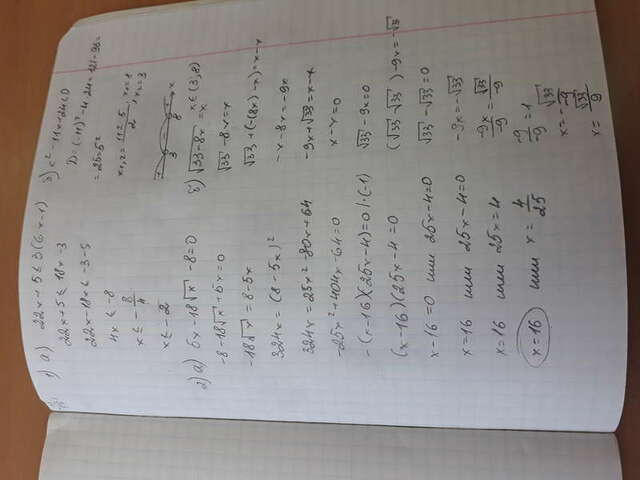 1) а) 22x + 5 ≤ 3(6x-1)
22x+5 ≤ 18x -3
22x-18x ≤ -3-5
4x ≤ -8
x ≤ - 8/4
x ≤ -2
б) x² -11x+24<0
D=(-11)²-4·24=121-96=
=25=5²
x1,2= (11±5)/2 ; x1=8 x2=3
3 8 x
x∈(3,8)
2) а) 5x-18√x -8=0
-8-18√x+5x=0
-18√x = 8-5x
324x = (8-5x)²
324x = 25x²-80x+64
-25x²+404x-64=0
-(x-16)(25x-4)=0 |·(-1)
(x-16)(25x-4=0
x-16=0 или 25x-4=0
x=16 или 25x-4=0
x=16 или 25x=4
x=16 или x= 4/25
б) √33-8x = x
√33 -8x=x
√33 +(-(8x)-x)=x-x
-x-8x=-9x
-9x+√33=x-x
x-x=0
√33 -9x=0
(√33-√33)-9x=-√33
√33-√33=0
-9x=-√33
-9x/-9 = √33/-9
-9/-9 =1
x=- √33/-9
x= √33/9